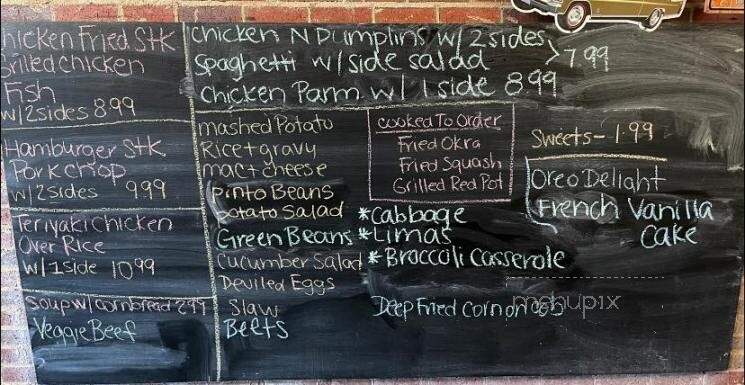 Chicken Fried Stk
Grilled Chicken
Fish
w/2sides 8 99
Hamburger Stk
Pork Chop
w/2sides 9.99
Teriyaki Chicken
Over Rice
w/1side 10 99
Soup w/cornbread 2 99
Veggie Beef
Chicken N Dumplins w/2sides
Spaghetti w/side salad
> 7.99
Chicken Parm w/1side 8 99
mashed Potato
Rice + gravy
mac + cheese
pinto Beans
potato Salad
Green Beans
Cucumber Salad
Deviled Eggs
Slaw
Beets
Cooked To Order
Fried Okra
Fried Squash
Grilled Red Pot
*Cabbage
*Limas
*Broccoli Casserole
Deep Fried Corn on Cob
Sweets - 1.99
Oreo Delight
French Vanilla
Cake
menupix